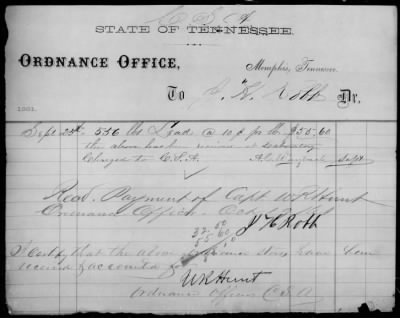 C S A
STATE OF TENNESSEE.
ORDNANCE OFFICE,
Memphis, Tennessee.
To J. H. Robb Dr.
1861.
Sept 25th 556 lbs Lead @ 10¢ pr lb $55.60
the above has been received at Laboratory
Charged to C.S.A. Supt
Recd. Payment of Capt. W R Hunt
Ordnance Officer
J H Robb
32.00
55 60
I certify that the above have been
received & accounted for
W R Hunt
Ordnance Officer C S A